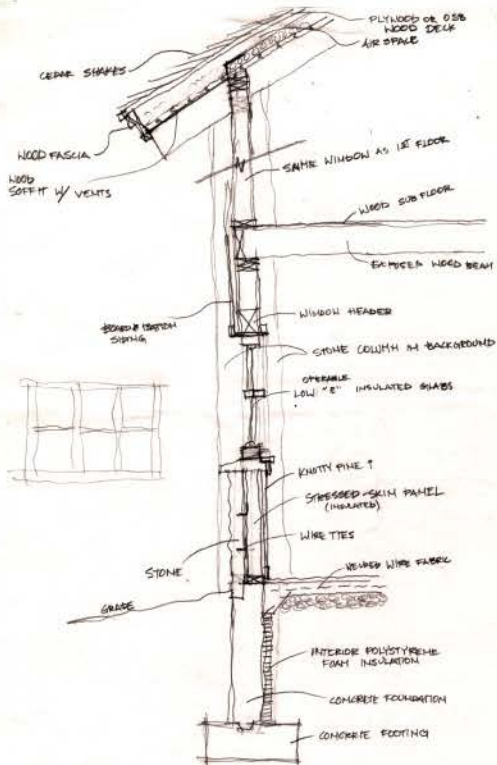 PLYWOOD OR OSB
WOOD DECK
AIR SPACE
CEDAR SHAKES
WOOD FASCIA
WOOD
SOFFIT W/ VENTS
SAME WINDOW AS 1ST FLOOR
WOOD SUB FLOOR
EXPOSED WOOD BEAM
WINDOW HEADER
BOARD & BATTON
SIDING
STONE COLUMN IN BACKGROUND
OPERABLE
LOW "E" INSULATED GLASS
KNOTTY PINE ?
STRESSED-SKIN PANEL
(INSULATED)
WIRE TIES
STONE
WELDED WIRE FABRIC
GRADE
INTERIOR POLYSTYRENE
FOAM INSULATION
CONCRETE FOUNDATION
CONCRETE FOOTING